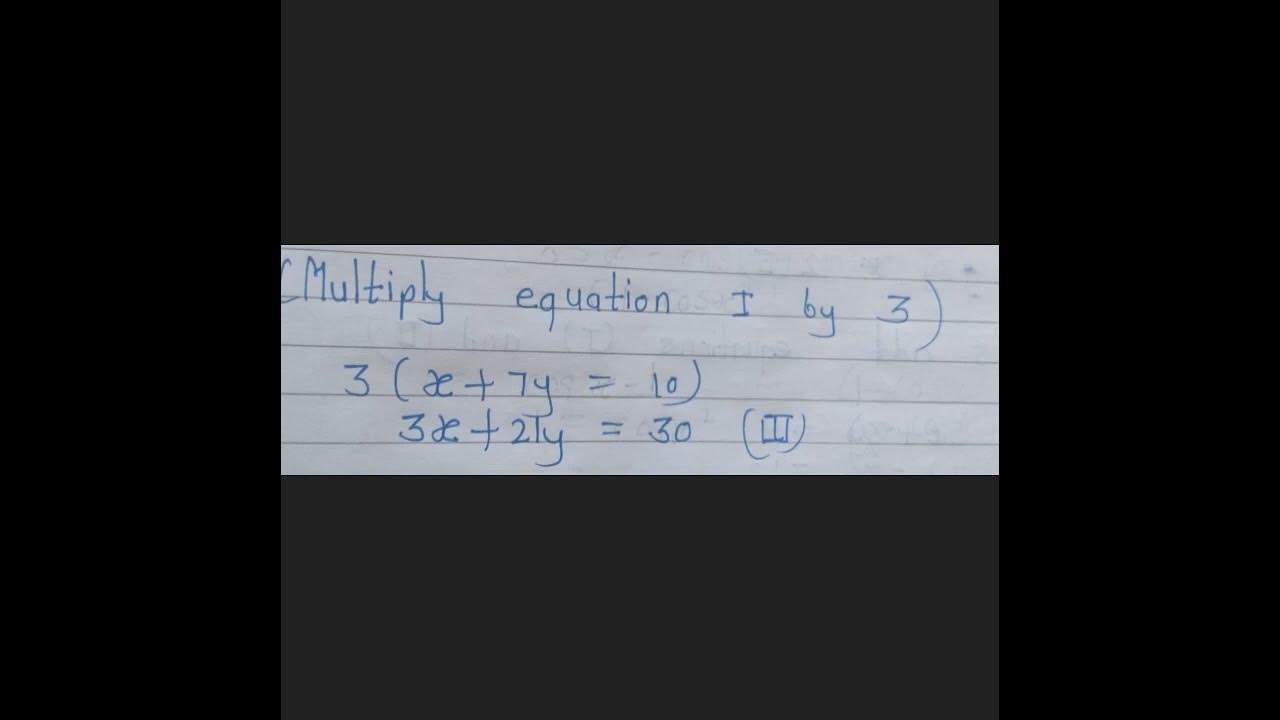 (Multiply equation I by 3)
3 (x + 7y = 10)
3x + 21y = 30 (III)